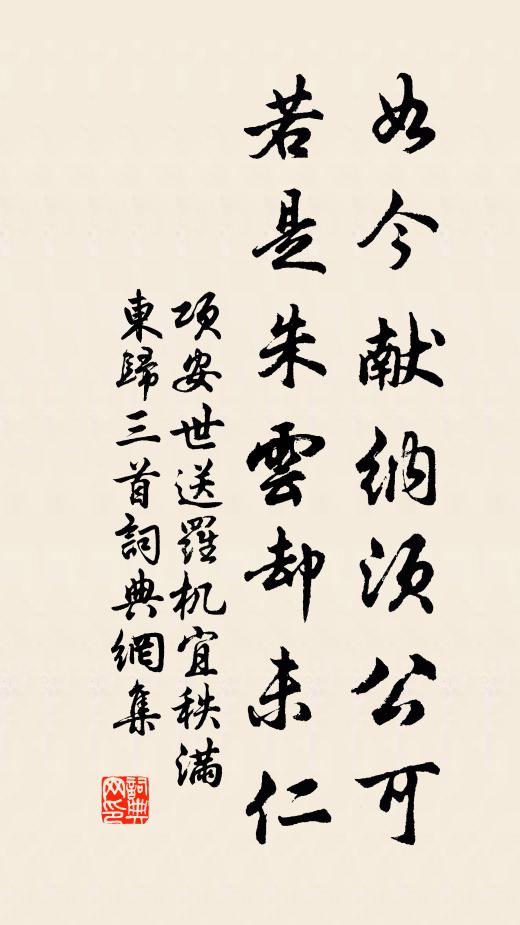 如今献纳须公可
若是朱雲却未仁
项安世送羅机宜秩满
東歸三首詞典網集
詞典
网印